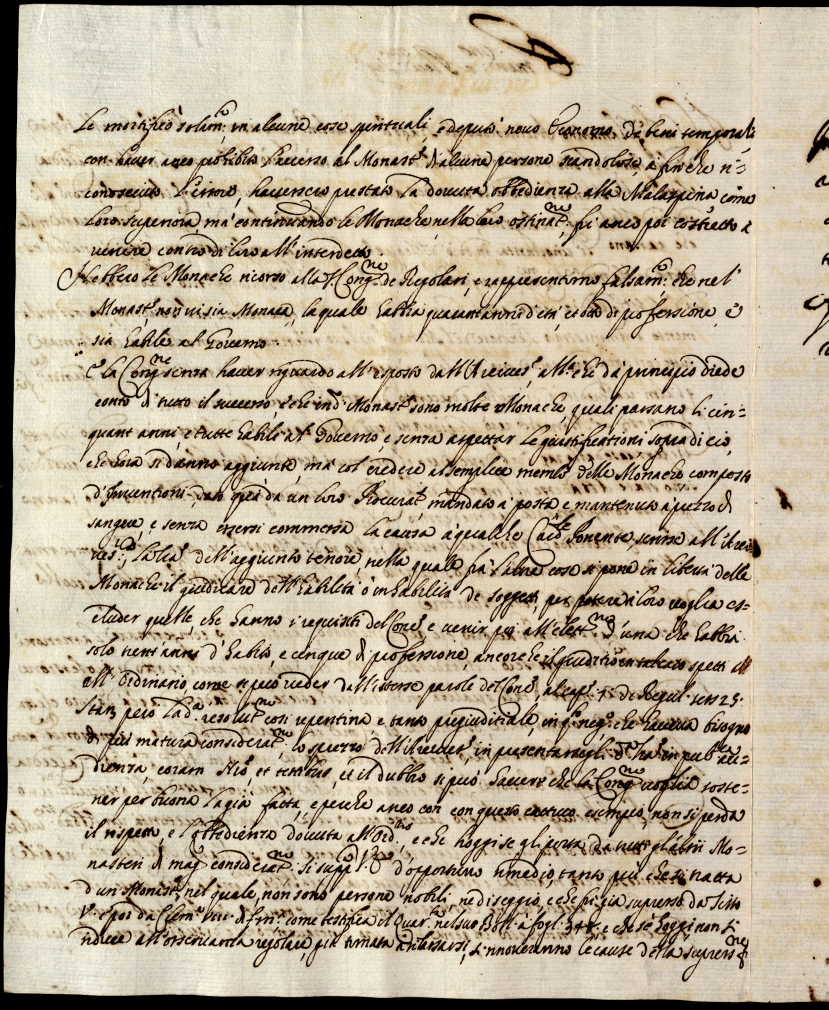 Le mortificò solam.te in alcune cose spirituali, e deputò novo Economo de beni temporali
con haver anco prohibito l'accesso al Monast.o di alcune persone scandolose, a fin che ri=
conosciuto l'errore, havessero prestato la dovuta obbedienza alla Malaspina come
loro superiora, ma continuando le Monache nella loro ostinat.ne fù anco poi costretto à
venire contro di loro all'interdetto.
Hebbero le Monache ricorso alla S. Cong.ne de Regolari, e rappresentorno falsam.te che nel
Monast.o non vi sia Monaca, la quale habbia quarant'anni d'età, et otto di professione, e
sia habile al Governo
E la Cong.ne senza haver riguardo all'esposto dall'Arcives.o, che da principio diede
conto di tutto il successo, e che in d.o Monast.o sono molte Monache, quali passano li cin=
quant'anni, e tutte habili al Governo, e senza aspettar le giustificationi sopra di ciò,
che hora si danno aggiunte, ma col credere al semplice memo.le delle Monache composto
d'Inventioni, dato quà da un loro Procurat.e mandato à posta, e mantenuto à prezzo di
sangue, e senza essersi commessa la causa à qualche Card.le Ponente, scrisse all'Arci
ves.o la lr̃a dell'aggiunto tenore nella quale frà l'altre cose si pone in libertà delle
Monache il giudicare dell'habilità ò inhabilità de soggetti, per potere à loro voglia es=
cluder quelle, che hanno i requisiti del Conc.o e venir poi all'elett.ne d'una che habbia
solo trent'anni d'habito, e cinque di professione, ancorche il giuditio in ciò spetti
all'Ordinario come si può veder dall'istesse parole del Conc.o, al cap. 7. de Regul. sess. 25.
Stante però la d.a resolut.ne così repentina e tanto pregiuditiale, in q.o neg.o che haveva bisogno
di più matura considerat.ne lo sprezzo dell'Arcives.o, in presentarsegli d.a lr̃a in pub.ca au=
dienza, coram Not.o et testibus, et il dubbio si può havere che la Cong.ne voglia soste=
ner per buona la già fatta, e perche anco con questo cattivo esempio, non si perda
il rispetto, e l'obbedienza dovuta all'Ord.rio, e che hoggi se gli porta da tutti gl'altri Mo=
nasteri di mag.r considerat.ne si supp.ca V. S. d'opportuno rimedio, tanto più che si tratta
d'un Monast.o nel quale, non sono persone nobili, ne di seggio, e che fù già suppresso da Sisto
V. e poi da Clem.te VIII. come testifica il Quar. nel suo Boll.o à fogl. 344. e che se hoggi non si
riduce all'osservanza regolare, già tornata a rilassarsi, si rinoveranno le cause della suppress.ne